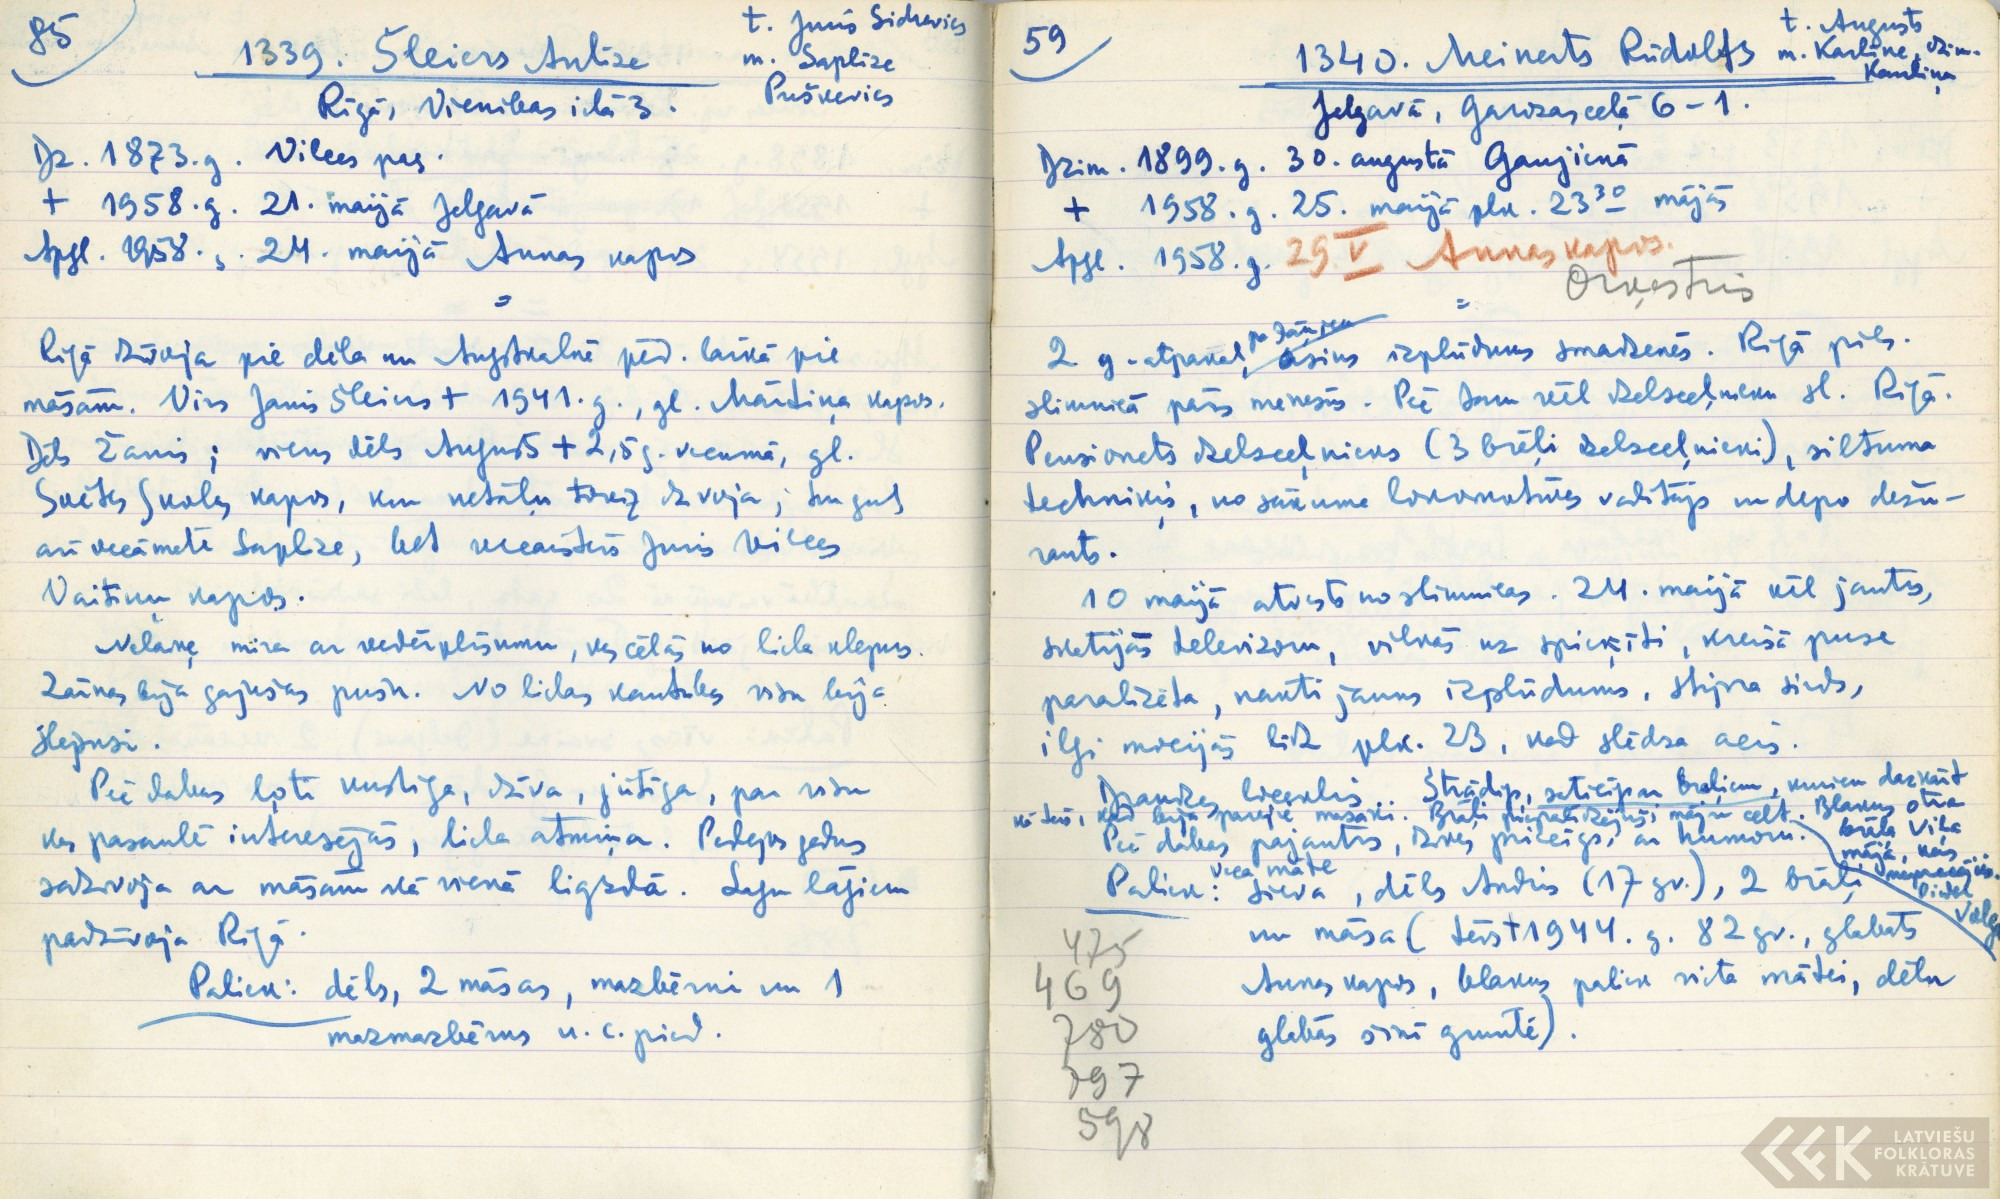 85
1339. Šleiers Anlize
t. Juris Sidrevics
m. Saplize
Puškevics
Rīgā, Vienības ielā 3.
Dz. 1873. g. Vilces pag.
+ 1958. g. 21. maijā Jelgavā
Apgl. 1958. g. 24. maijā Annas kapos
=
Rīgā dzīvoja pie dēla un Augstkalnē pēd. laikā pie
māsām. Vīrs Janis Šleiers + 1941. g., gl. Mārtiņa kapos.
Dēls Žanis; viens dēls Augusts + 2,5 g. vecumā, gl.
Skolas kapos, kur netālu toreiz dzīvoja; tur guļ
arī vecāmāte Saplize, bet vecaistēvs Juris Vilces
Vaitiņu kapos.
Nelaiķe mira ar vēderplīsumu, kas cēlās no liela klepus.
Zarnas bija gājušas pušu. No lielas kautrības visu bija
slēpusi.
Pēc dabas ļoti kustīga, dzīva, jūtīga, par visu
kas pasaulē interesējās, liela atmiņa. Pēdējos gadus
sadzīvoja ar māsām kā vienā ligzdā. Lagu lāģiem
padzīvoja Rīgā.
Paliek: dēls, 2 māsas, mazbērni un 1
mazmazbērns u. c. pied.
59
1340. Meinerts Rūdolfs
t. Augusts
m. Karlīne, dzim.
Kauliņa
Jelgavā, Garozas ceļā 6 - 1.
Dzim. 1899. g. 30. augustā Gaujienā
+ 1958. g. 25. maijā plk. 23 30 mājās
Apgl. 1958. g. 29 V Annas kapos.
Orķestris
=
2 g. atpakaļ, asins izplūdums smadzenēs. Rīgā pils.
slimnīcā pāris mēnesis. Pēc tam vēl dzelzceļnieku sl. Rīgā.
Pensionēts dzelzceļnieks (3 brāļi dzelzceļnieki), siltuma
techniķis, no sākuma lokomotīves vadītājs un depo dežu-
rants.
10 maijā atvests no slimnīcas. 24. maijā vēl jautrs,
skatījās televizoru, vilkās uz spieķīti, kreisā puse
paralizēta, naktī jauns izplūdums, stipra sirds,
ilgi mocījās līdz plk. 23, kad slēdza acis.
Draudzes loceklis. Strādīgs, saticīgs ar brāļiem, kuriem dazkārt
kā tēvs, kad bija pavairāk mazāki. Brāļi piepalīdzējuši māju celt. Blakus otra
brāļa Viļa
mājā, kas
neprecējies.
Pēc dabas pajautrs, dzīves priecīgs, ar humoru.
Paliek: vecā māte
sieva, dēls Andris (17 gv.), 2 brāļi
un māsa (tēvs + 1944. g. 82 gv., glabāts
Annas kapos, blakus paliek vieta mātei, dēlu
glabās viņā gruntē).
475
469
780
797
598
LATVIEŠU
FOLKLORAS
KRĀTUVE